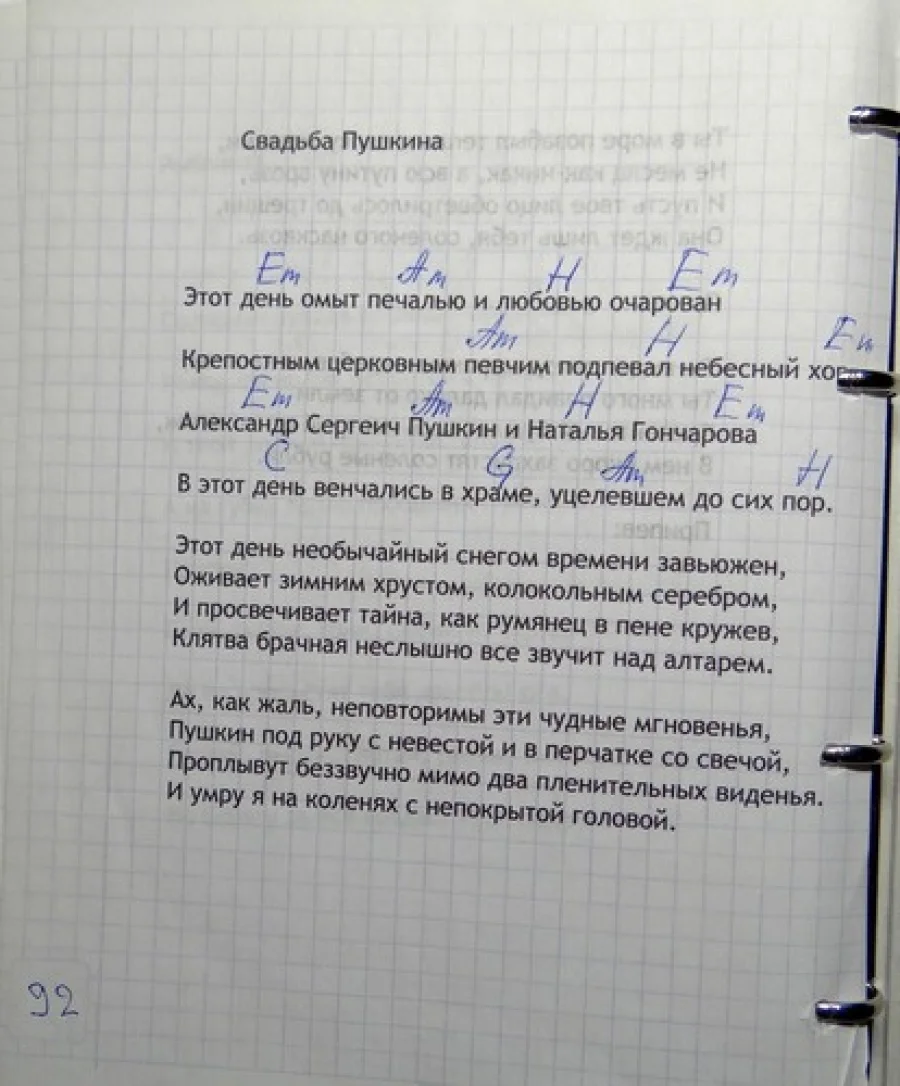 Свадьба Пушкина
Em Am H Em
Этот день омыт печалью и любовью очарован
Am H Em
Крепостным церковным певчим подпевал небесный хор
Em Am H Em
Александр Сергеич Пушкин и Наталья Гончарова
C G Am H
В этот день венчались в храме, уцелевшем до сих пор.
Этот день необычайный снегом времени завьюжен,
Оживает зимним хрустом, колокольным серебром,
И просвечивает тайна, как румянец в пене кружев,
Клятва брачная неслышно все звучит над алтарем.
Ах, как жаль, неповторимы эти чудные мгновенья,
Пушкин под руку с невестой и в перчатке со свечой,
Проплывут беззвучно мимо два пленительных виденья.
И умру я на коленях с непокрытой головой.
92